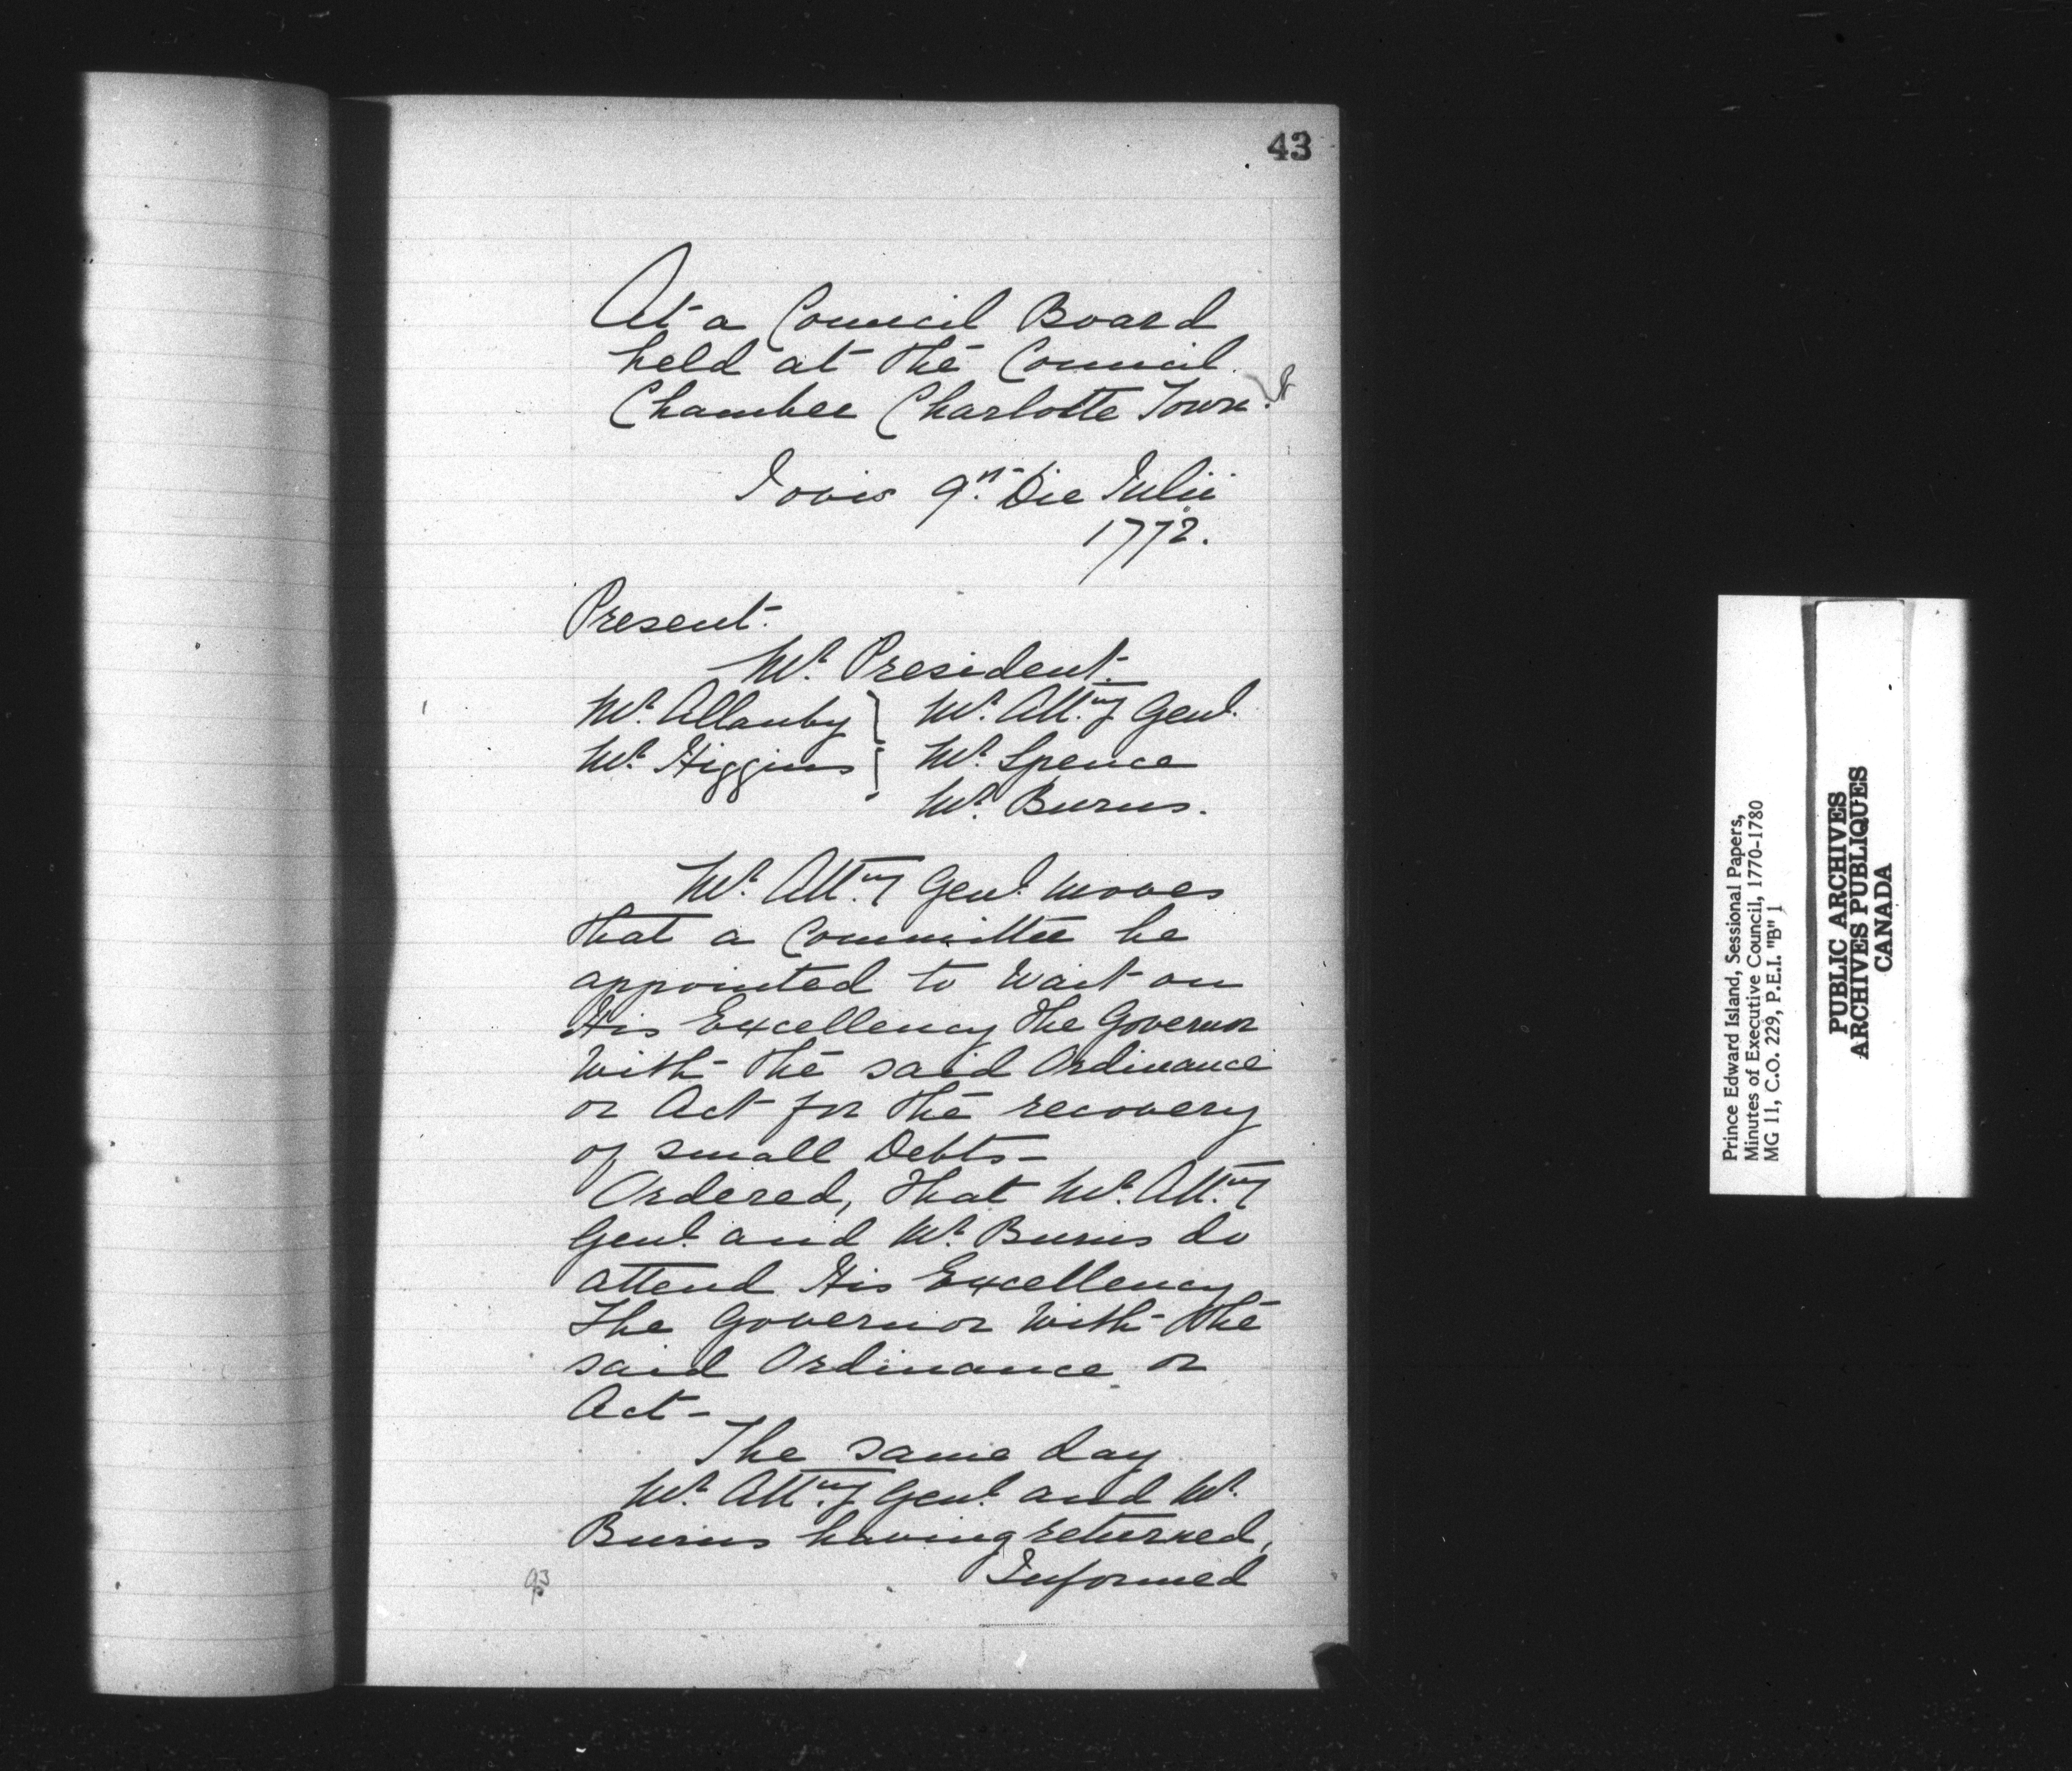 43
At a Council Board
held at the Council
Chamber Charlotte Town.
Jovis 9th Die Julii
1772.
Present.
Mr. President.
Mr. Allanby } Mr. Att.ny Genl.
Mr. Higgins } Mr. Spence
Mr. Burns.
Mr. Att.ny Genl. moves
that a Committee be
appointed to Wait on
His Excellency the Governor
With the said Ordinance
or Act for the recovery
of small Debts-
Ordered, that Mr. Att.ny
Genl. and Mr. Burns do
attend His Excellency
The Governor With the
said Ordinance or
Act-
The same day
Mr. Att.ny Genl. and Mr.
Burns having returned,
Informed
Prince Edward Island, Sessional Papers,
Minutes of Executive Council, 1770-1780
MG 11, C.O. 229, P.E.I. "B" 1
PUBLIC ARCHIVES
ARCHIVES PUBLIQUES
CANADA